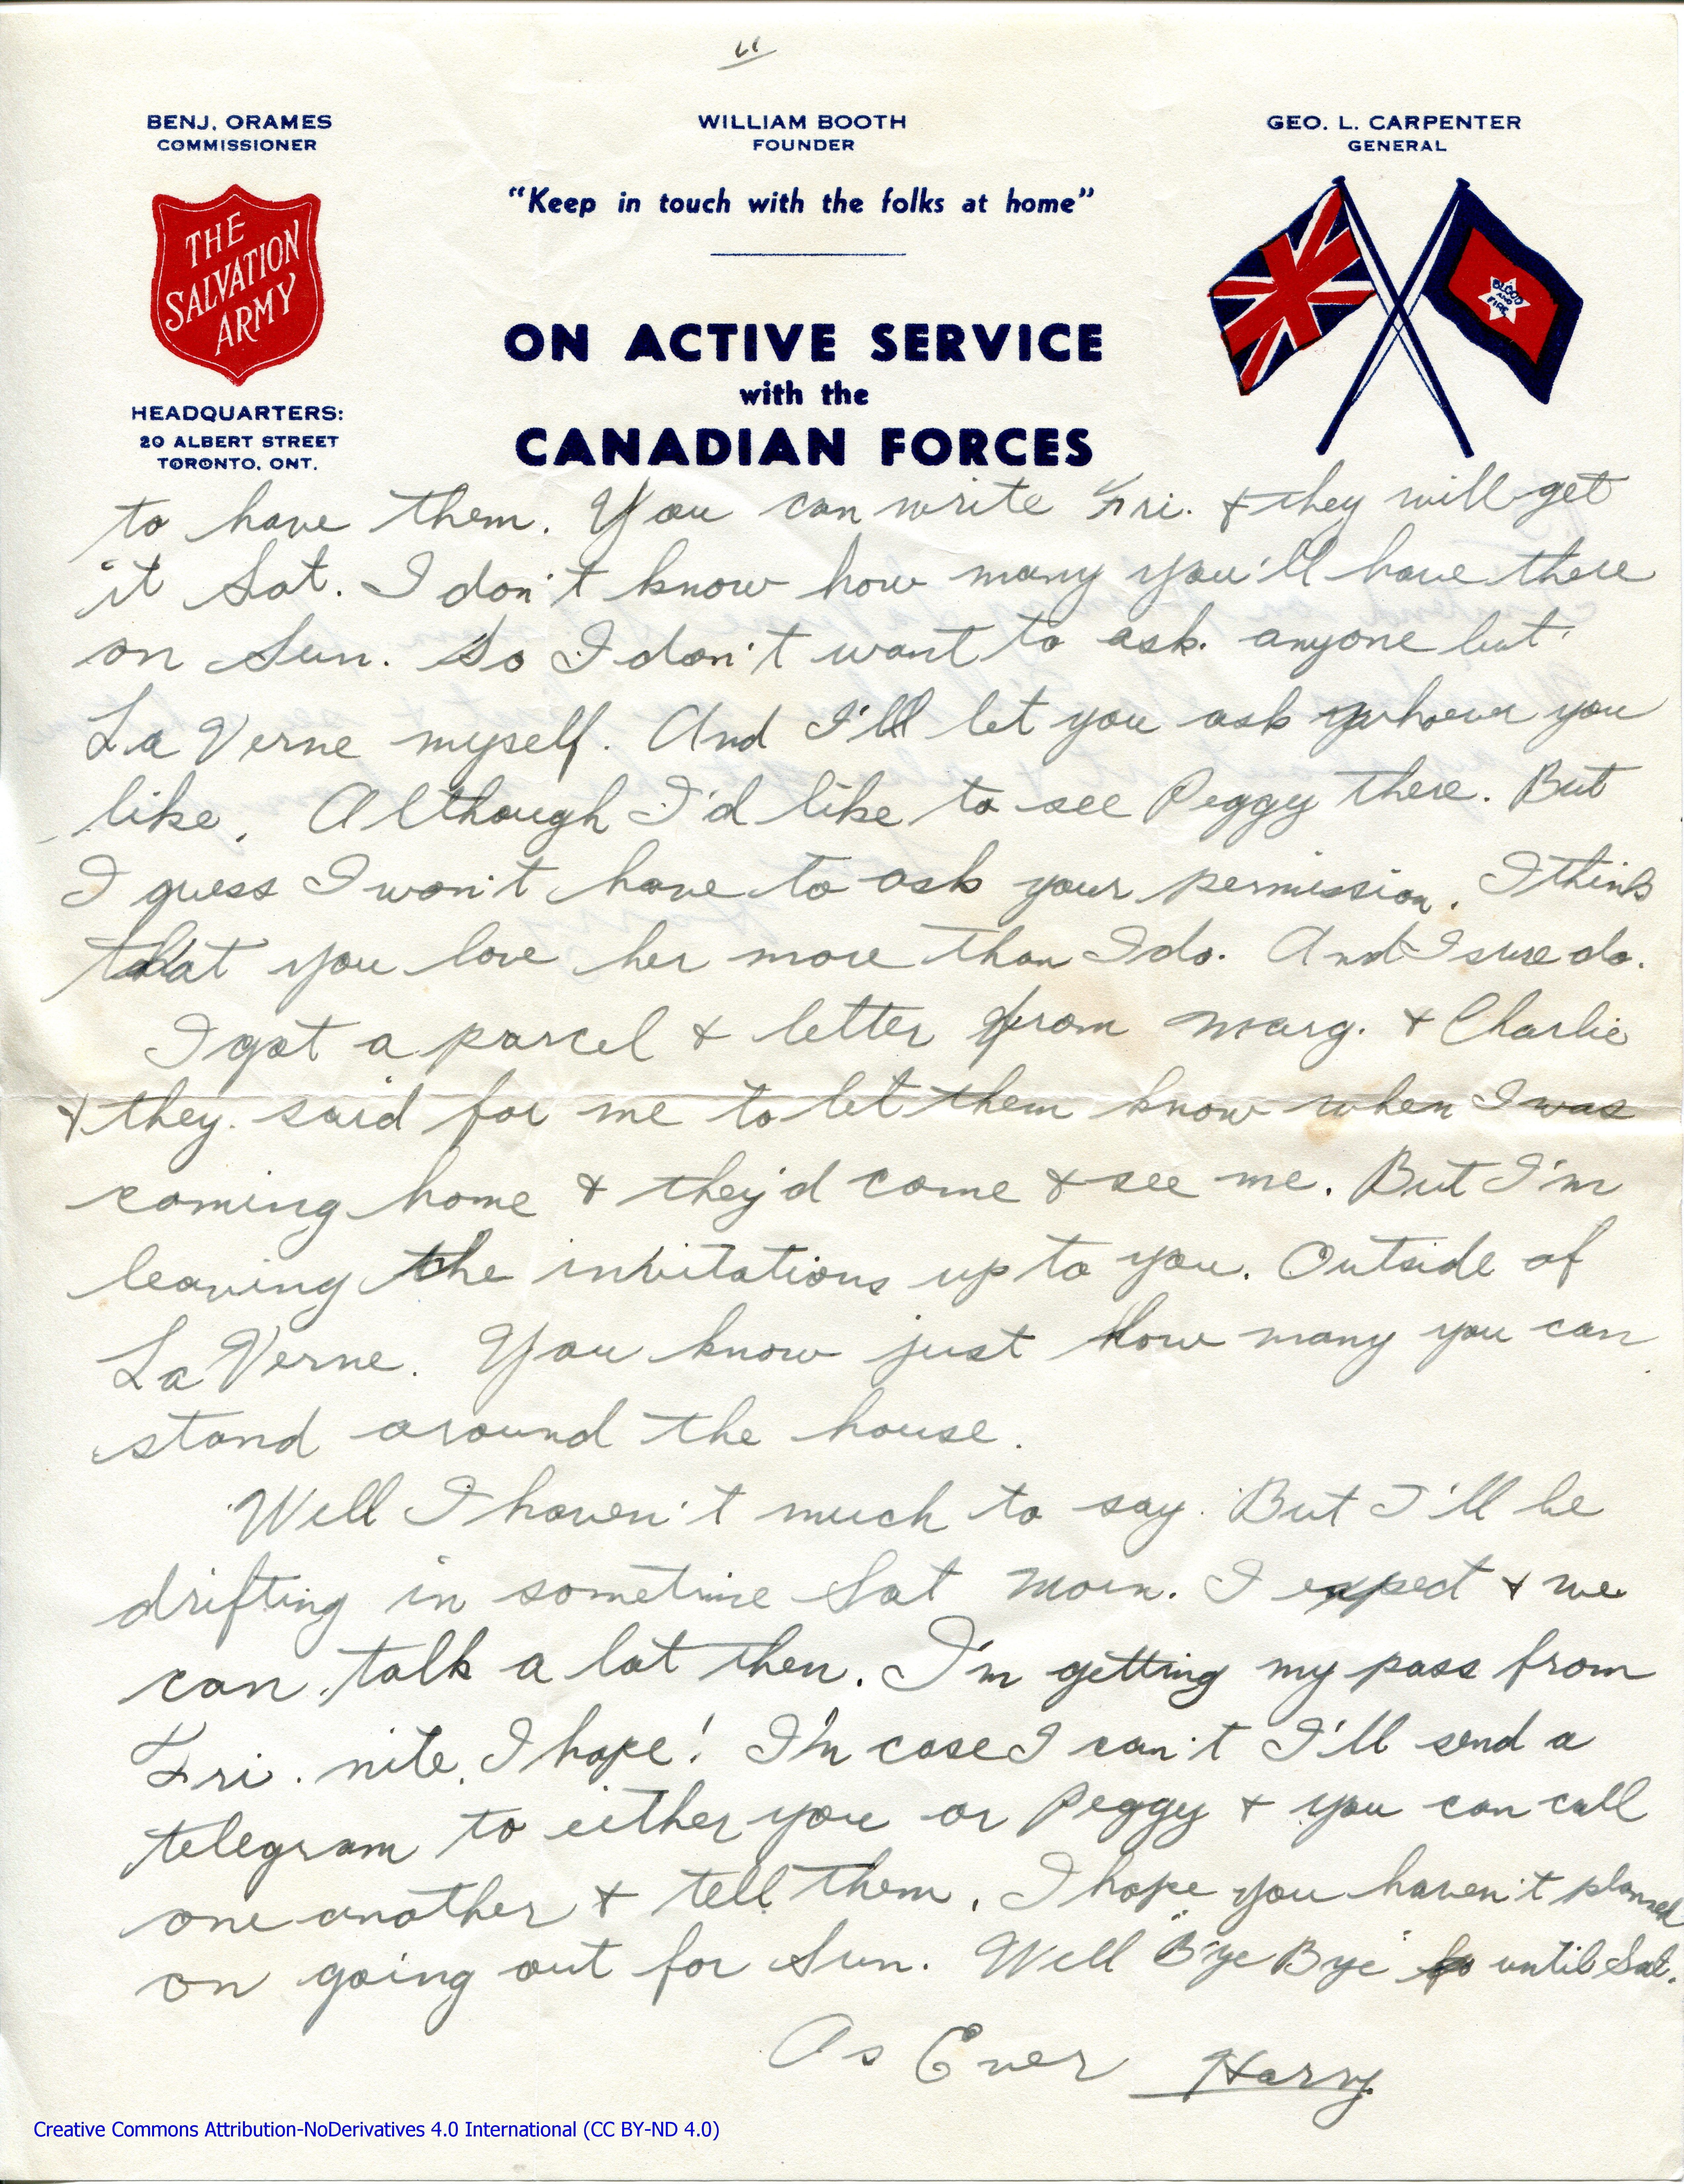 11
BENJ. ORAMES
COMMISSIONER
WILLIAM BOOTH
FOUNDER
GEO. L. CARPENTER
GENERAL
"Keep in touch with the folks at home"
THE
SALVATION
ARMY
BLOOD
AND
FIRE
ON ACTIVE SERVICE
with the
CANADIAN FORCES
HEADQUARTERS:
20 ALBERT STREET
TORONTO, ONT.
to have them. You can write Fri. & they will get
it Sat. I don't know how many you'll have there
on Sun. So I don't want to ask. anyone but
La Verne myself. And I'll let you ask whoever you
like. Although I'd like to see Peggy there. But
I guess I won't have to ask your permission. I think
that you love her more than I do. And I sure do.
I got a parcel & letter from Marg. & Charlie
& they. said for me to let them know when I was
coming home & they'd come & see me. But I'm
leaving the invitations up to you. Outside of
La Verne. You know just how many you can
stand around the house.
Well I haven't much to say. But I'll be
drifting in sometime Sat morn. I expect & we
can talk a lot then. I'm getting my pass from
Fri. nite. I hope! I'n case I can't I'll send a
telegram to either you or Peggy & you can call
one another & tell them. I hope you haven't planned
on going out for Sun. Well "Bye Bye" until Sat.
As Ever Harry
Creative Commons Attribution-NoDerivatives 4.0 International (CC BY-ND 4.0)